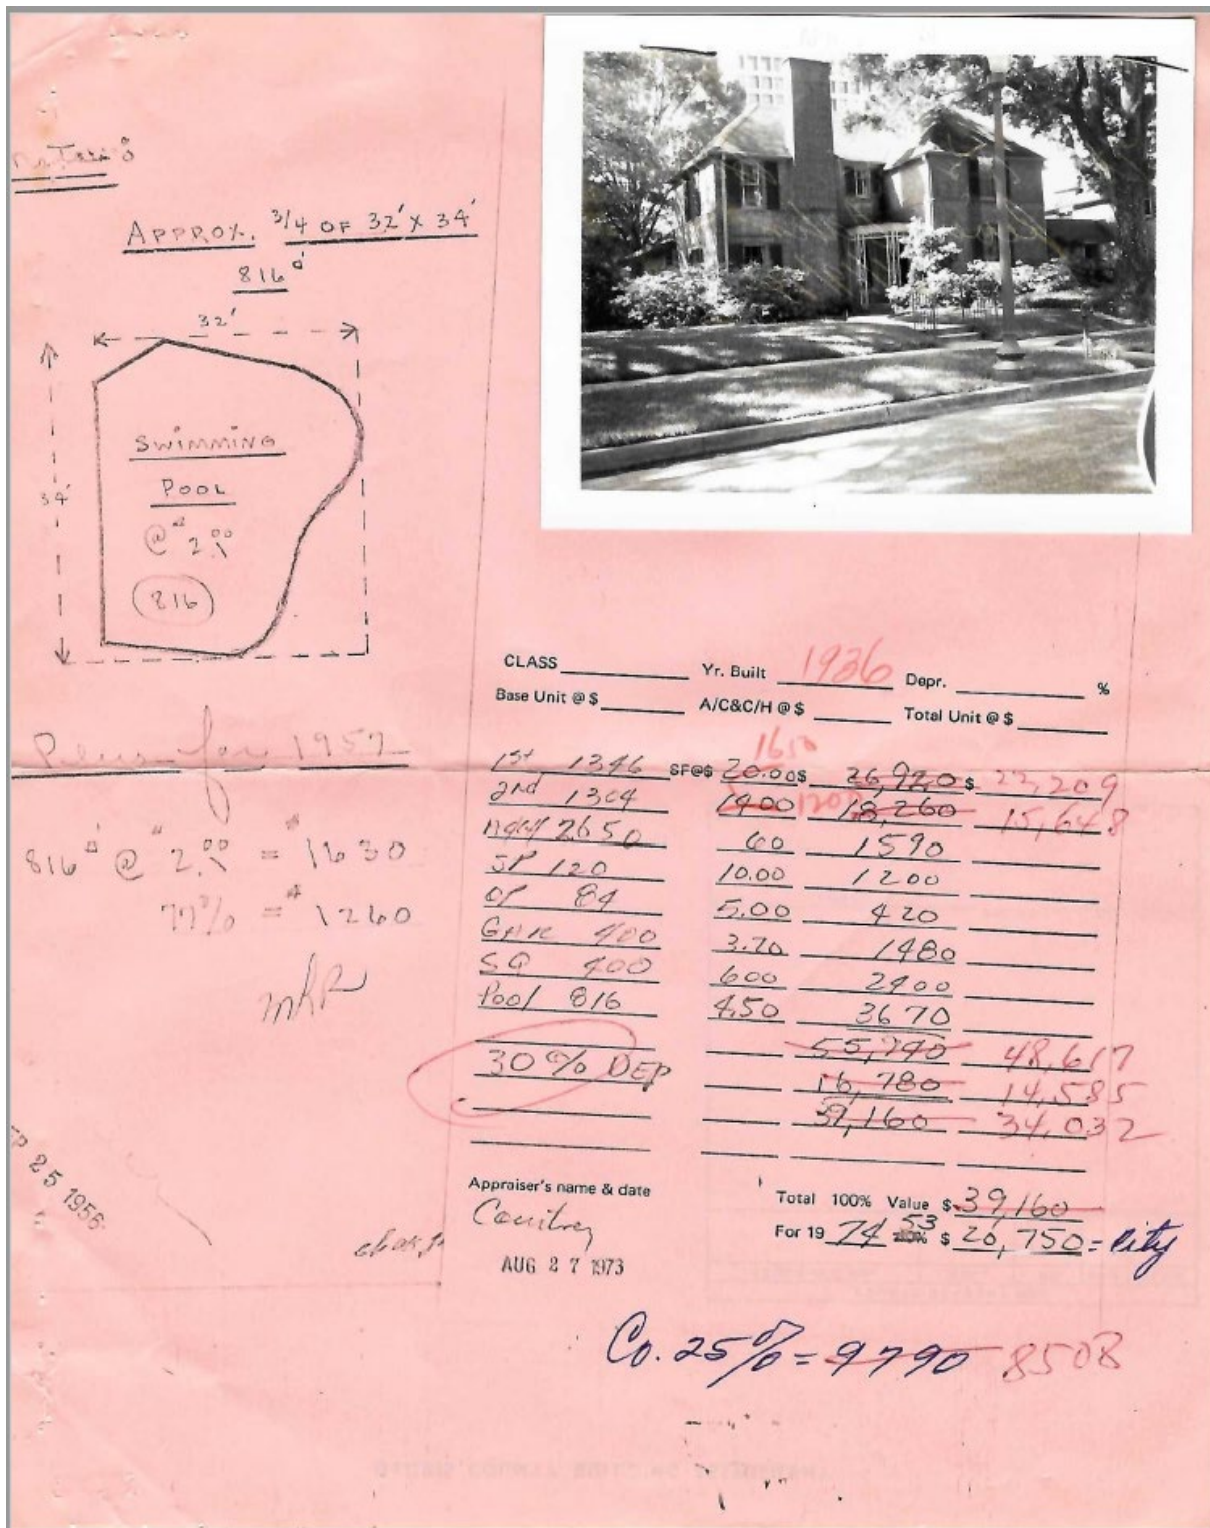 Notes:
APPROX. 3/4 OF 32' X 34'
816 □'
32'
34'
SWIMMING
POOL
@ $2.00
(816)
Plus for 1957
816 □' @ $2.00 = $1630
77% = $1260
MKR
25 1956
CLASS Yr. Built 1936 Depr. %
Base Unit @ $ A/C&C/H @ $ Total Unit @ $
16.50
1st 1346 SF@$ 20.00 $ 26,920 $ 22,209
2nd 1304 14.00 1200 18,260 15,648
2650 60 1590
SP 120 10.00 1200
OP 84 5.00 420
GAR 400 3.70 1480
SQ 400 600 2400
Pool 816 4.50 3670
55,940 48,617
30% DEP 16,780 14,585
39,160 34,032
Appraiser's name & date
AUG 27 1973
Total 100% Value $ 39,160
For 19 74 53 % $ 20,750 = City
Co. 25% = 9790 8508